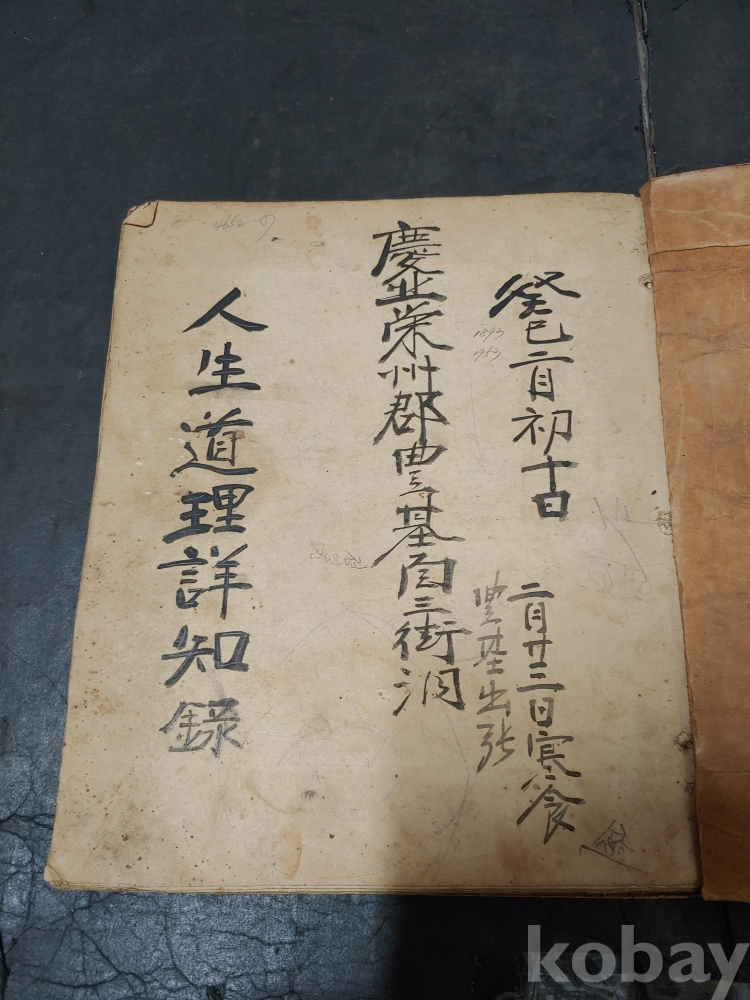 癸巳二月初十日
二月廿三日寒食
豊基出張
慶北栄州郡豊基面三街洞
人生道理詳知錄
1893
1953
kobay